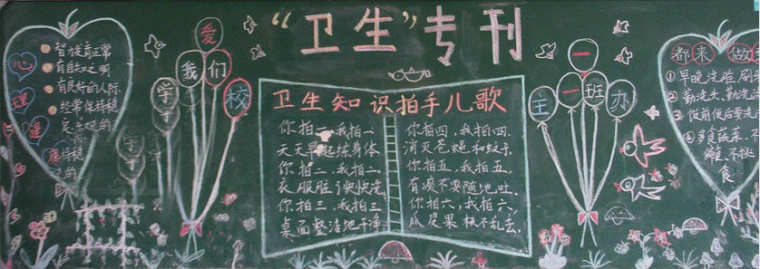 "卫生"专刊
心理健康
智力发育正常
有自知之明
有良好的人际
经常保持稳
定乐观的
爱我们学校
卫生知识拍手儿歌
你拍一、我拍一
天天早起炼身体
你拍二、我拍二
衣服脏了快快洗
你拍三、我拍三
桌面整洁地干净
你拍四、我拍四
消灭苍蝇和蚊子
你拍五、我拍五
有痰不要随地吐
你拍六、我拍六
瓜皮果核不乱丢
一一班主办
都来做
①早晚洗脸刷
②勤洗头、勤洗
③饭前便后要洗
④多食蔬菜、不
挑食